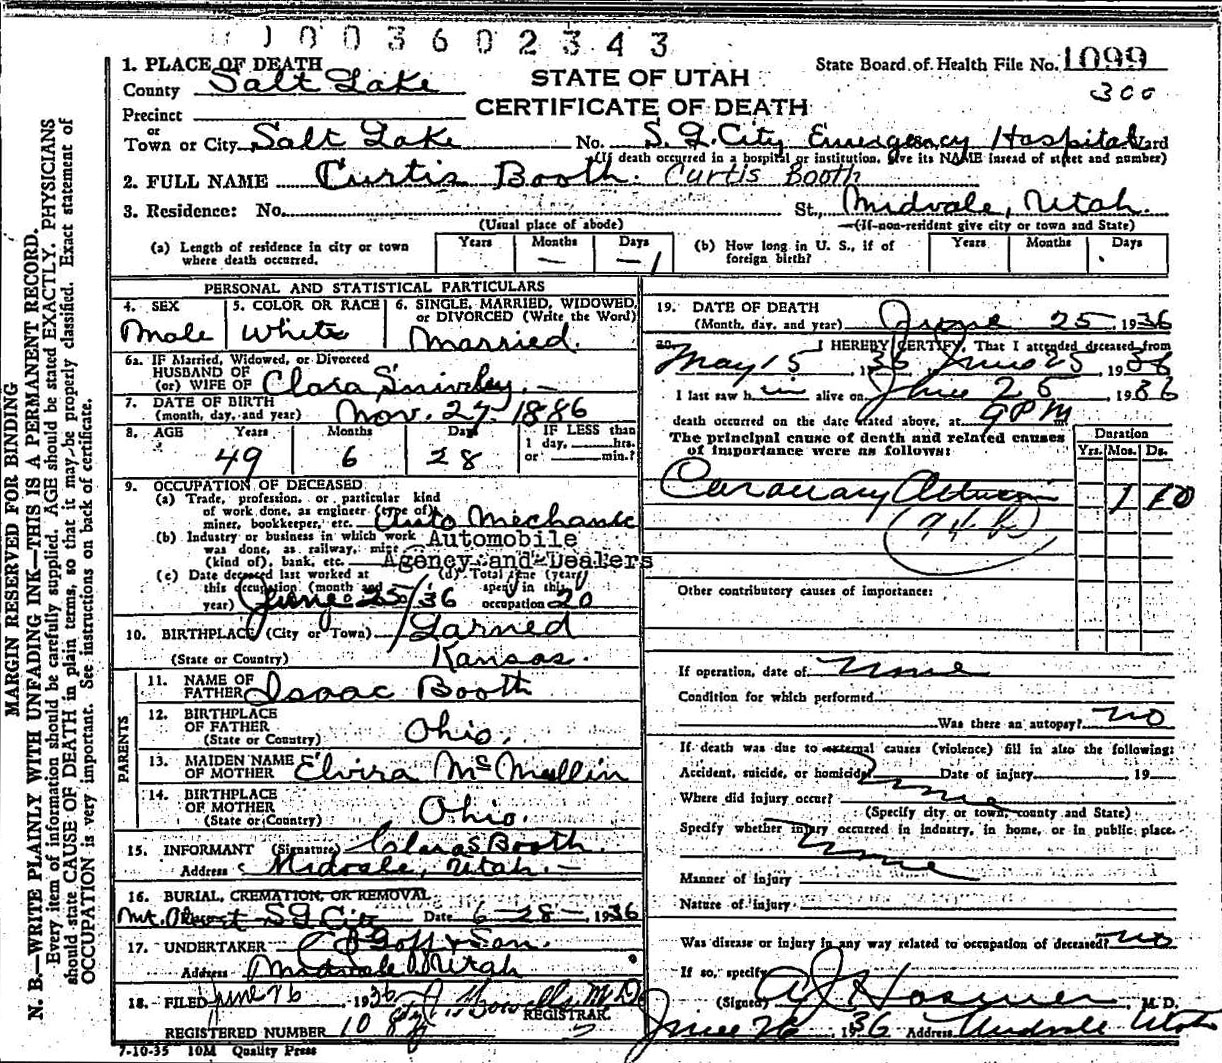 1003602343
1. PLACE OF DEATH
County Salt Lake
STATE OF UTAH
CERTIFICATE OF DEATH
State Board of Health File No. 1099
300
Precinct
or
Town or City Salt Lake No. S. L. City Emergency Hospital Ward
(If death occurred in a hospital or institution, give its NAME insead of street and number)
2. FULL NAME Curtis Booth. Curtis Booth
3. Residence: No. St., Midvale, Utah.
(Usual place of abode) (If non-resident give city or town and State)
(a) Length of residence in city or town where death occurred. Years Months — Days —1
(b) How long in U. S., if of foreign birth? Years Months Days
PERSONAL AND STATISTICAL PARTICULARS
4. SEX Male
5. COLOR OR RACE White
6. SINGLE, MARRIED, WIDOWED, or DIVORCED (Write the Word) Married.
6a. IF Married, Widowed, or Divorced
HUSBAND OF
(or) WIFE OF Clara Snively.
7. DATE OF BIRTH
(month, day, and year) Nov. 27 - 1886
8. AGE Years 49 Months 6 Days 28
IF LESS than 1 day, hrs. or min.?
9. OCCUPATION OF DECEASED
(a) Trade, profession, or particular kind
of work done, as engineer (type of)
miner, bookkeeper, etc. Auto Mechanic
(b) Industry or business in which work
was done, as railway, mine
(kind of), bank, etc. Automobile
Agency and Dealers
(c) Date deceased last worked at
this occupation (month and
year) June 25/36
(d) Total time (years)
spent in this
occupation 20
10. BIRTHPLACE (City or Town) Larned
(State or Country) Kansas.
PARENTS
11. NAME OF FATHER Isaac Booth
12. BIRTHPLACE OF FATHER (State or Country) Ohio.
13. MAIDEN NAME OF MOTHER Elvira McMullin
14. BIRTHPLACE OF MOTHER (State or Country) Ohio.
15. INFORMANT (Signature) Clara S Booth
Address Midvale, Utah.
16. BURIAL, CREMATION, OR REMOVAL
Mt. Olivet S L City Date 6-28-1936
17. UNDERTAKER Goff & Son.
Address Midvale Utah
18. FILED June 26 1936 M.D.
REGISTRAR.
REGISTERED NUMBER
7-10-35 10M Quality Press
19. DATE OF DEATH
(Month, day, and year) June 25 1936
20. I HEREBY CERTIFY, That I attended deceased from
May 15, 1936 June 25 1936
I last saw him alive on June 25, 1936
death occurred on the date stated above, at 9 PM m.
The principal cause of death and related causes
of importance were as follows:
Duration
Yrs. Mos. Ds.
1 10
(94b)
Other contributory causes of importance:
If operation, date of None
Condition for which performed
Was there an autopsy? No
If death was due to external causes (violence) fill in also the following:
Accident, suicide, or homicide? Date of injury 19
Where did injury occur? None
(Specify city or town, county and State)
Specify whether injury occurred in industry, in home, or in public place.
None
Manner of injury
Nature of injury
Was disease or injury in any way related to occupation of deceased? No
If so, specify
(Signed) A J Hosmer, M. D.
June 26, 1936 Address Midvale Utah
MARGIN RESERVED FOR BINDING
N. B.—WRITE PLAINLY WITH UNFADING INK—THIS IS A PERMANENT RECORD.
Every item of information should be carefully supplied. AGE should be stated EXACTLY. PHYSICIANS
should state CAUSE OF DEATH in plain terms, so that it may be properly classified. Exact statement of
OCCUPATION is very important. See instructions on back of certificate.